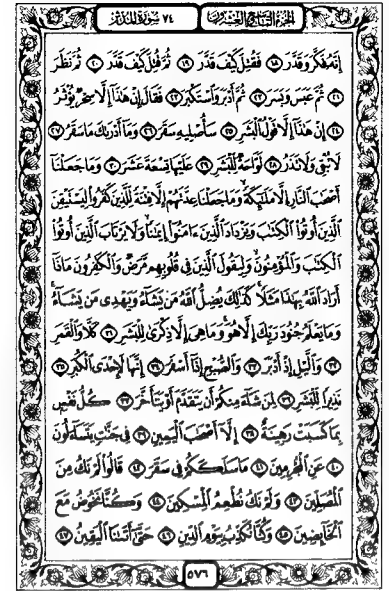 الجزء التاسع والعشرون ٧٤ سورة المدثر
إِنَّهُ فَكَّرَ وَقَدَّرَ ١٨ فَقُتِلَ كَيْفَ قَدَّرَ ١٩ ثُمَّ قُتِلَ كَيْفَ قَدَّرَ ٢٠ ثُمَّ نَظَرَ
٢١ ثُمَّ عَبَسَ وَبَسَرَ ٢٢ ثُمَّ أَدْبَرَ وَاسْتَكْبَرَ ٢٣ فَقَالَ إِنْ هَٰذَا إِلَّا سِحْرٌ يُؤْثَرُ
٢٤ إِنْ هَٰذَا إِلَّا قَوْلُ الْبَشَرِ ٢٥ سَأُصْلِيهِ سَقَرَ ٢٦ وَمَا أَدْرَاكَ مَا سَقَرُ ٢٧
لَا تُبْقِي وَلَا تَذَرُ ٢٨ لَوَّاحَةٌ لِّلْبَشَرِ ٢٩ عَلَيْهَا تِسْعَةَ عَشَرَ ٣٠ وَمَا جَعَلْنَا
أَصْحَابَ النَّارِ إِلَّا مَلَائِكَةً وَمَا جَعَلْنَا عِدَّتَهُمْ إِلَّا فِتْنَةً لِّلَّذِينَ كَفَرُوا لِيَسْتَيْقِنَ
الَّذِينَ أُوتُوا الْكِتَابَ وَيَزْدَادَ الَّذِينَ آمَنُوا إِيمَانًا وَلَا يَرْتَابَ الَّذِينَ أُوتُوا
الْكِتَابَ وَالْمُؤْمِنُونَ وَلِيَقُولَ الَّذِينَ فِي قُلُوبِهِم مَّرَضٌ وَالْكَافِرُونَ مَاذَا
أَرَادَ اللَّهُ بِهَٰذَا مَثَلًا كَذَٰلِكَ يُضِلُّ اللَّهُ مَن يَشَاءُ وَيَهْدِي مَن يَشَاءُ
وَمَا يَعْلَمُ جُنُودَ رَبِّكَ إِلَّا هُوَ وَمَا هِيَ إِلَّا ذِكْرَىٰ لِلْبَشَرِ ٣١ كَلَّا وَالْقَمَرِ
٣٢ وَاللَّيْلِ إِذْ أَدْبَرَ ٣٣ وَالصُّبْحِ إِذَا أَسْفَرَ ٣٤ إِنَّهَا لَإِحْدَى الْكُبَرِ ٣٥
نَذِيرًا لِّلْبَشَرِ ٣٦ لِمَن شَاءَ مِنكُمْ أَن يَتَقَدَّمَ أَوْ يَتَأَخَّرَ ٣٧ كُلُّ نَفْسٍ
بِمَا كَسَبَتْ رَهِينَةٌ ٣٨ إِلَّا أَصْحَابَ الْيَمِينِ ٣٩ فِي جَنَّاتٍ يَتَسَاءَلُونَ
٤٠ عَنِ الْمُجْرِمِينَ ٤١ مَا سَلَكَكُمْ فِي سَقَرَ ٤٢ قَالُوا لَمْ نَكُ مِنَ
الْمُصَلِّينَ ٤٣ وَلَمْ نَكُ نُطْعِمُ الْمِسْكِينَ ٤٤ وَكُنَّا نَخُوضُ مَعَ
الْخَائِضِينَ ٤٥ وَكُنَّا نُكَذِّبُ بِيَوْمِ الدِّينِ ٤٦ حَتَّىٰ أَتَانَا الْيَقِينُ ٤٧
٥٧٦